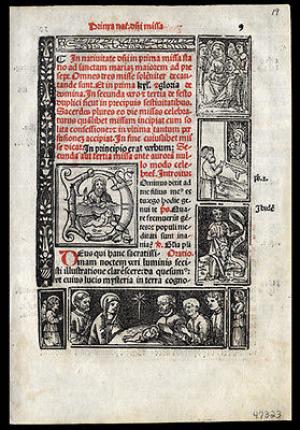 19
Prima nat. dñi missa
9
In natiuitate dñi in prima missa sta
tio ad sanctam mariam maiorem ad pre
sepe. Omnes tres misse solēniter decan
tande sunt. Et in prima kyr. & gloria de
domina. In secunda vero & tertia de festo
duplici sicut in precipuis festiuitatibus.
Sacerdos plures eo die missas celebra
turus qualibet missam incipiat cum so
lita confessione: & in vltima tantum per
fusiones accipiat. In fine cuiuslibet mis
se dicat. In principio erat verbum; Se
cunda aut tertia missa ante aurorā nul
lo modo cele
bret. Introitus
Ominus dixit ad
me filius meus es
tu: ego hodie ge
nui te ps. Qua
re fremuerūt gē
tes: et populi me
ditati sunt ina
nia? Glīa pŕi
Oratio.
Deus qui hanc sacratissi
mam noctem veri luminis feci
sti illustratione clarescere: da quesumꝰ:
et cuius lucis mysteria in terra cogno
ps. 2.
47323